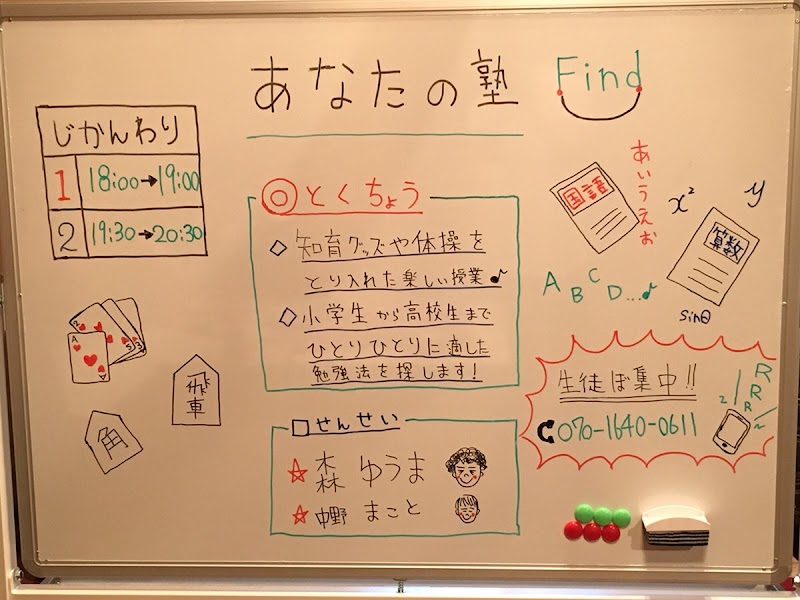 あなたの塾 Find
じかんわり
1 18:00→19:00
2 19:30→20:30
◎とくちょう
◇知育グッズや体操を
とり入れた楽しい授業♪
◇小学生から高校生まで
ひとりひとりに適した
勉強法を探します!
□せんせい
☆森 ゆうま
☆中野 まこと
国語
あいうえお
x²
y
算数
A B C D...♪
sinθ
生徒ぼ集中!!
070-1640-0611
RRR
A
5
3
飛車
角